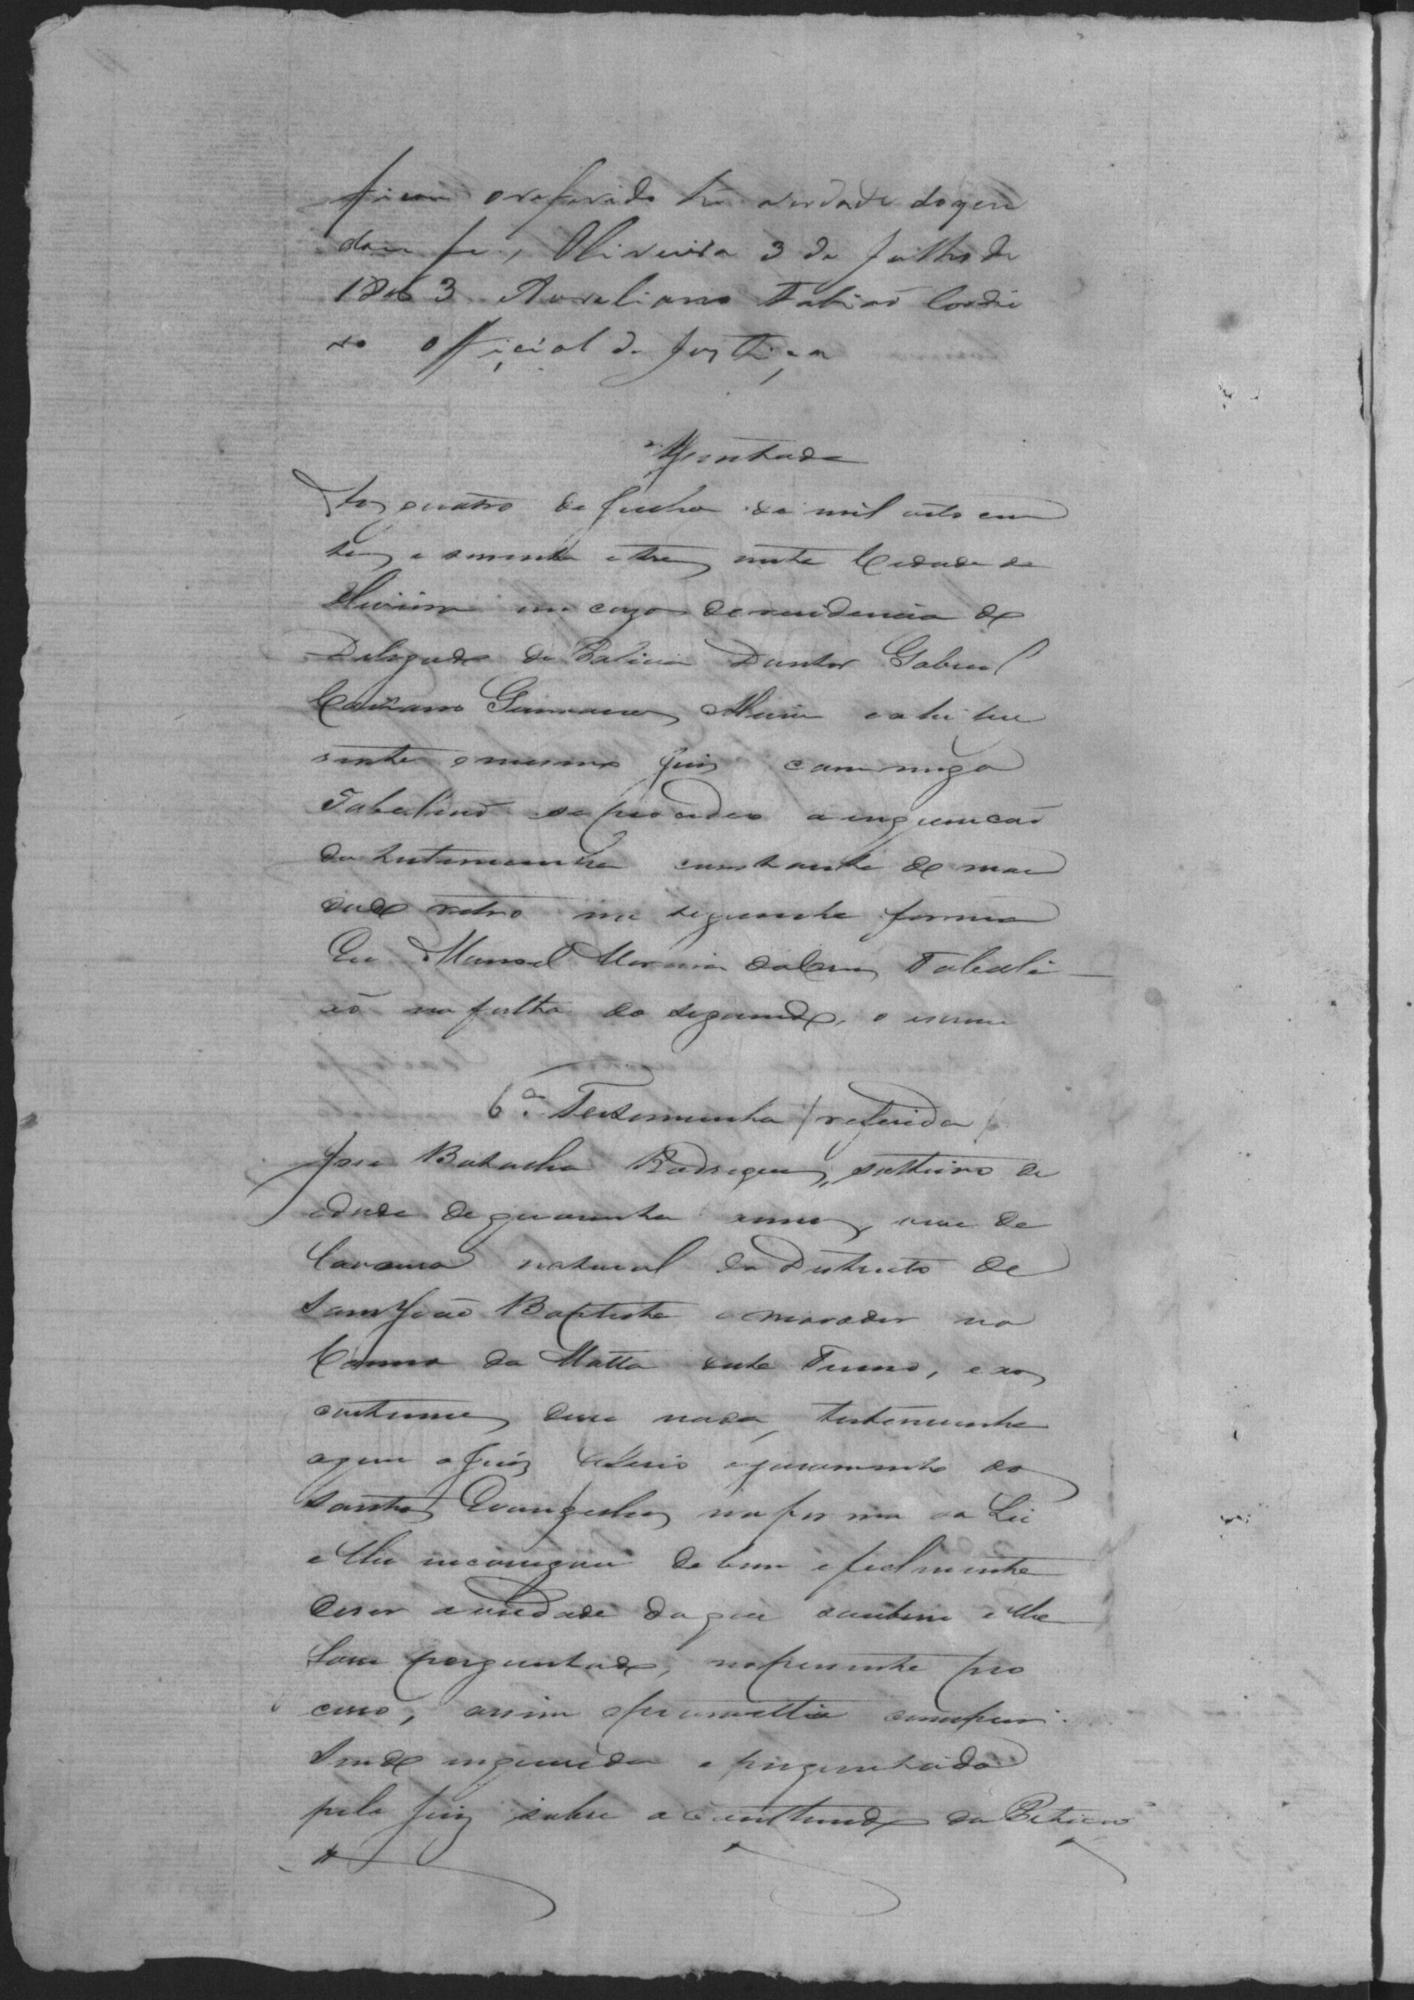 ficou o referido he verdade do que
dou fe, Oliveira 3 de Julho de
1863 Aureliano Fabiaõ Cordei
ro Official de Justiça
Assentada
Aos quatro de Julho de mil oito cen
tos e secenta e tres nesta Cidade de
Oliveira em caza de residencia do
Delegado de Policia Doutor Gabriel
Caetano Guimaraes ahi pre
sente o mesmo Juiz commigo
Tabeliaõ se procedeo a inquiricaõ
da testemunha constante do man
dado retro na seguinte forma
Eu Manoel Tabeli
aõ na falta do segundo, o escrevi
6ª Testemunha (referida)
José Rodrigues, solteiro de
idade de quarenta annos, vive de
Lavoura natural do Districto de
Sam Joaõ Baptista e morador no
Carmo da Matta deste Termo, e aos
costumes disse nada, testemunha
a quem o Juiz deferio o juramento dos
Santos Evangelhos na forma da Lei
e lhe encarregou de bem e fielmente
dizer a verdade do que soubesse e lhe
fosse perguntado, no presente pro
cesso, assim o prometteo cumprir.
Sendo inquirida e perguntada
pelo Juiz sobre o conteudo da Peticaõ